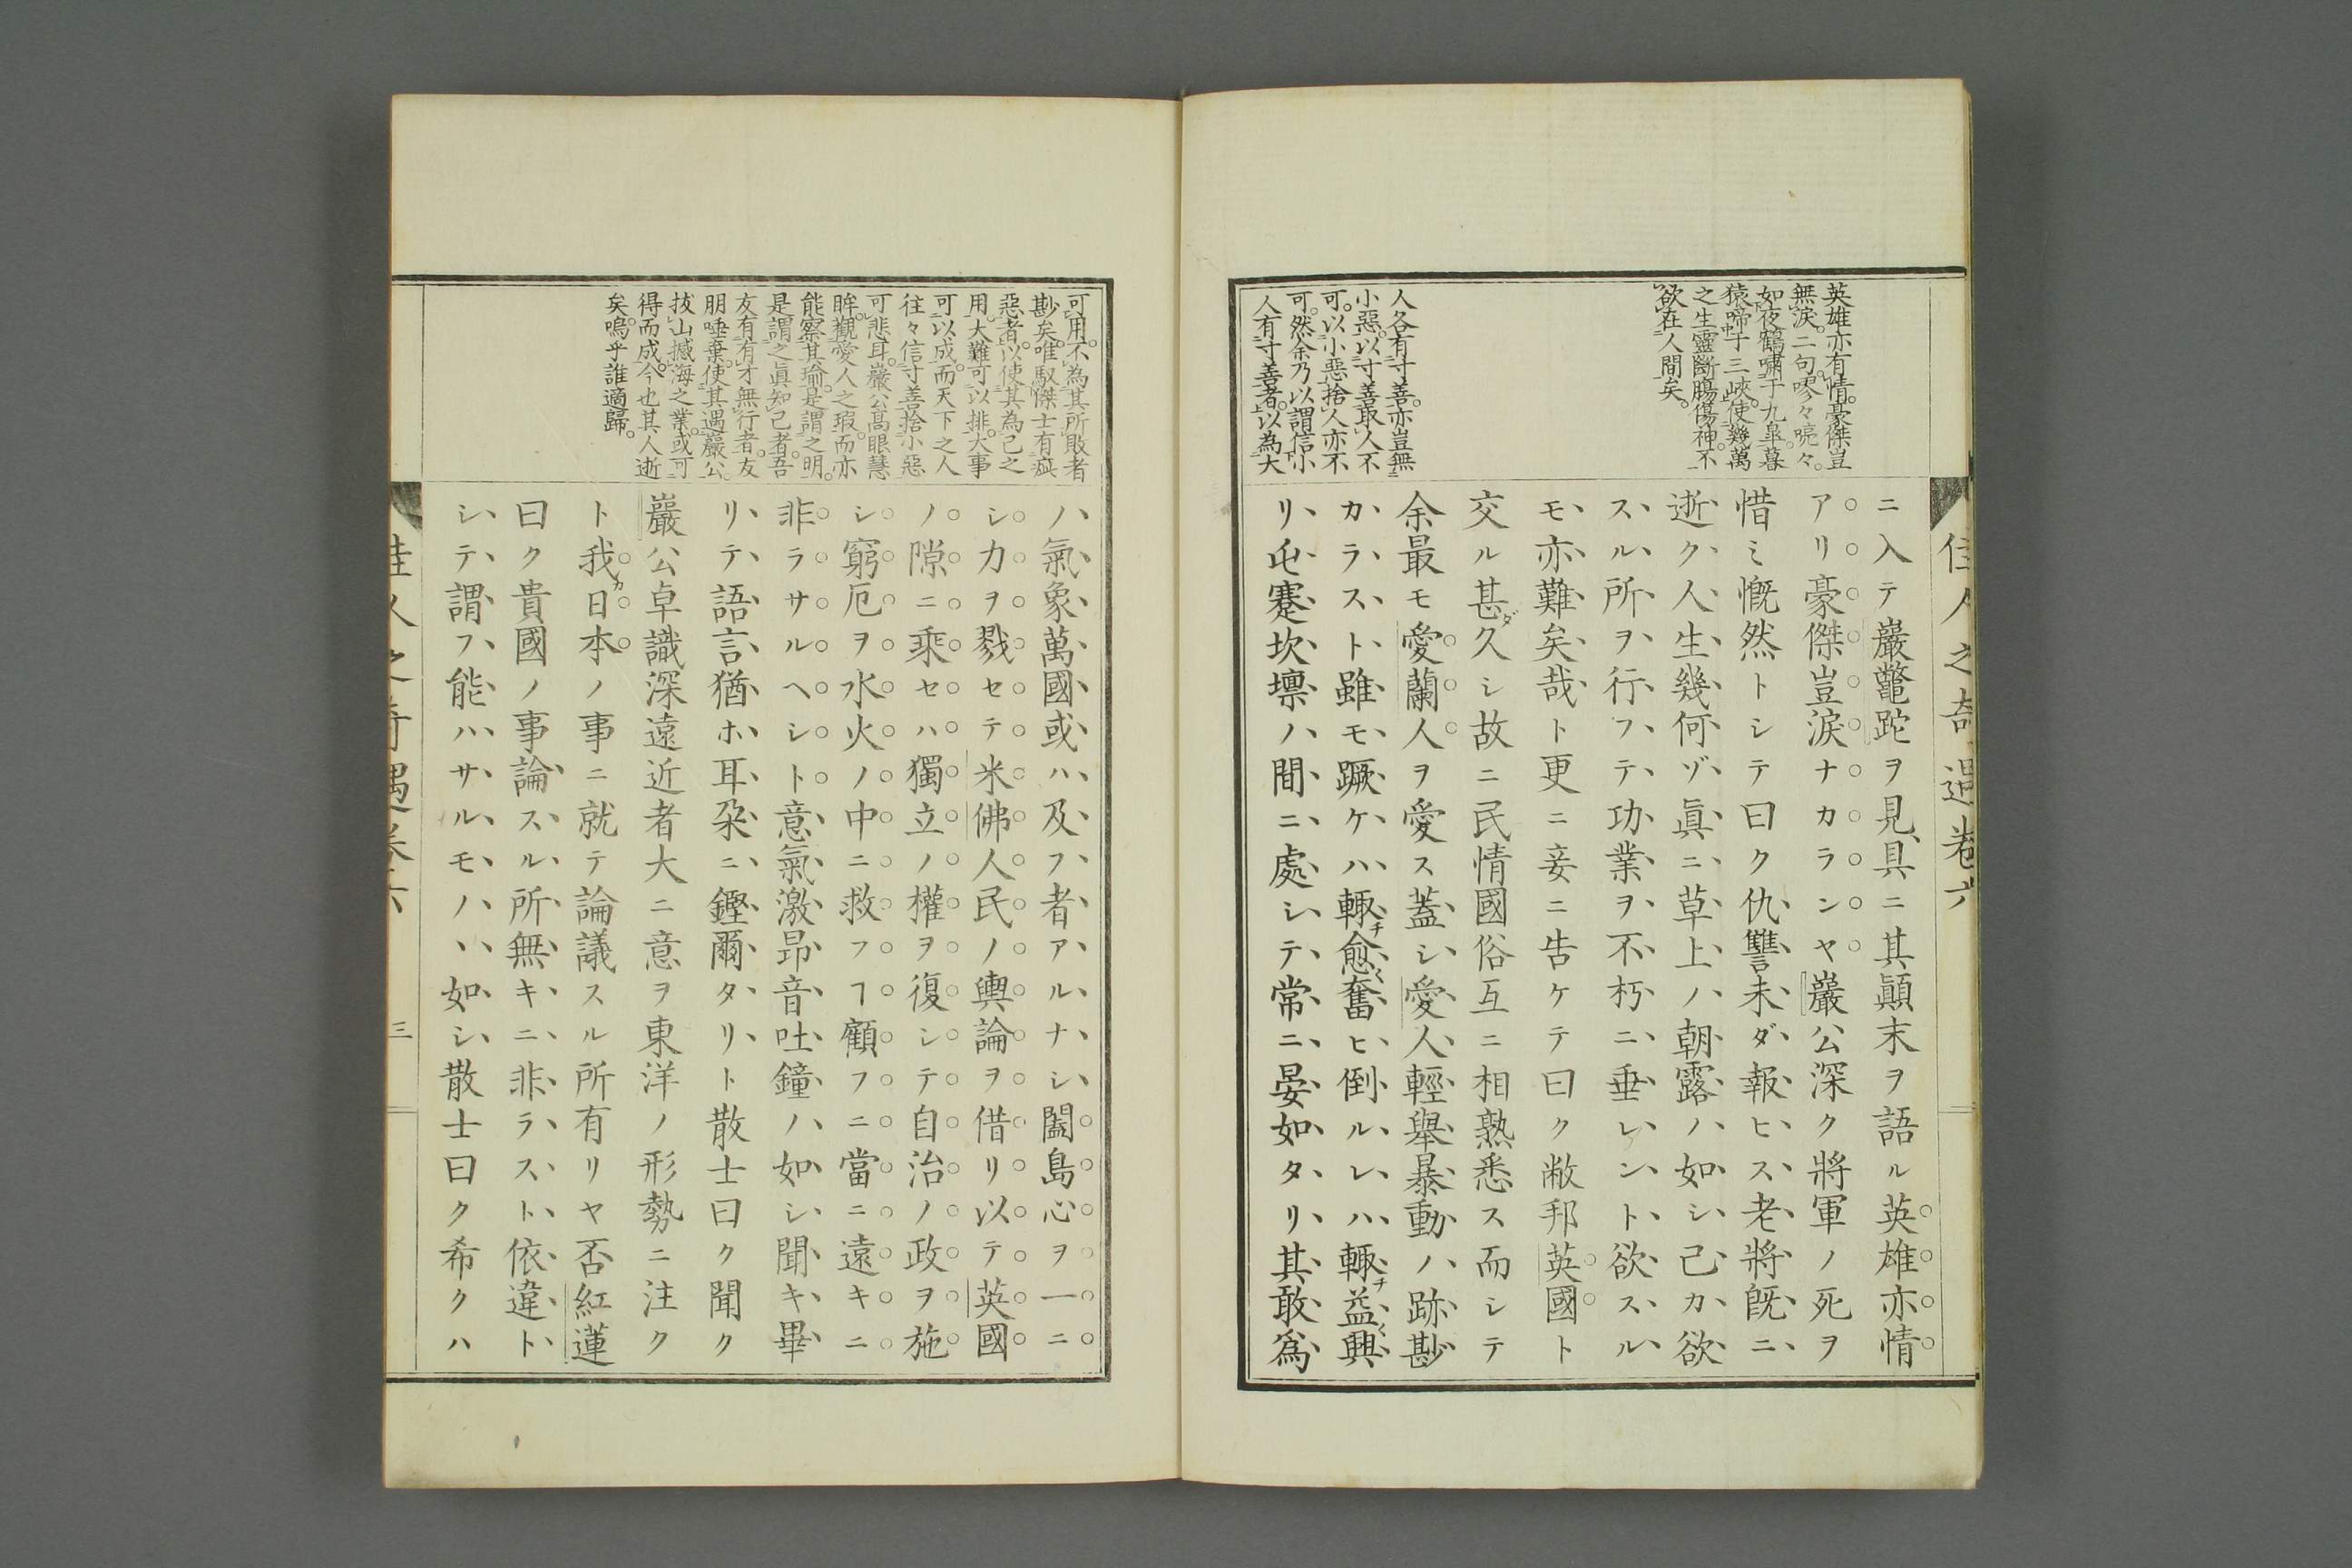 佳人之奇遇卷六
英雄亦有情豪傑豈
無涙二句嘐々喨々
如夜鶴嘯于九皐暮
猿啼于三峽使幾萬
之生靈斷膓傷神不
欲在人間矣
人各有寸善亦豈無
小惡以寸善取人不
可以小惡捨人亦不
可然余乃以謂信小
人有寸善者以為大
ニ入テ巖鼈跎ヲ見具ニ其顚末ヲ語ル英雄亦情
アリ豪傑豈涙ナカランヤ巖公深ク將軍ノ死ヲ
惜ミ慨然トシテ曰ク仇讐未ダ報ヒス老將既ニ
逝ク人生幾何ゾ眞ニ草上ノ朝露ノ如シ己カ欲
スル所ヲ行フテ功業ヲ不朽ニ垂レント欲スル
モ亦難矣哉ト更ニ妾ニ告ケテ曰ク敝邦英國ト
交ル甚ダ久シ故ニ民情國俗互ニ相熟悉ス而シテ
余最モ愛蘭人ヲ愛ス蓋シ愛人輕舉暴動ノ跡尠
カラスト雖モ蹶ケハ輙チ愈く奮ヒ倒ルレハ輙チ益く興
リ屯蹇坎壈ノ間ニ處シテ常ニ晏如タリ其敢爲
可用不為其所敗者
尠矣唯馭傑士有疵
惡者以使其為己之
用大難可以排大事
可以成而天下之人
往々信寸善捨小惡
可悲耳巖公高眼慧
眸觀愛人之瑕而亦
能察其瑜是謂之明
是謂之眞知己者吾
友有有才無行者友
朋唾棄使其遇巖公
拔山撼海之業或可
得而成今也其人逝
矣嗚乎誰適歸
ノ氣象萬國或ハ及フ者アルナシ闔島心ヲ一ニ
シ力ヲ戮セテ米佛人民ノ輿論ヲ借リ以テ英國
ノ隙ニ乘セハ獨立ノ權ヲ復シテ自治ノ政ヲ施
シ窮厄ヲ水火ノ中ニ救フヿ顧フニ當ニ遠キニ
非ラサルヘシト意氣激昂音吐鐘ノ如シ聞キ畢
リテ語言猶ホ耳朶ニ鏗爾タリト散士曰ク聞ク
巖公卓識深遠近者大ニ意ヲ東洋ノ形勢ニ注ク
ト我カ日本ノ事ニ就テ論議スル所有リヤ否紅蓮
曰ク貴國ノ事論スル所無キニ非ラスト依違ト
シテ謂フ能ハサルモノヽ如シ散士曰ク希クハ
佳人之奇遇卷六
三